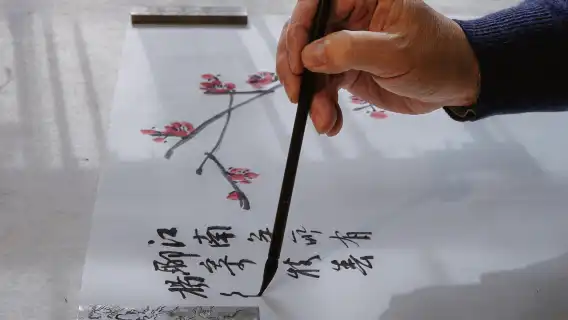 江南无所有
聊寄枝春